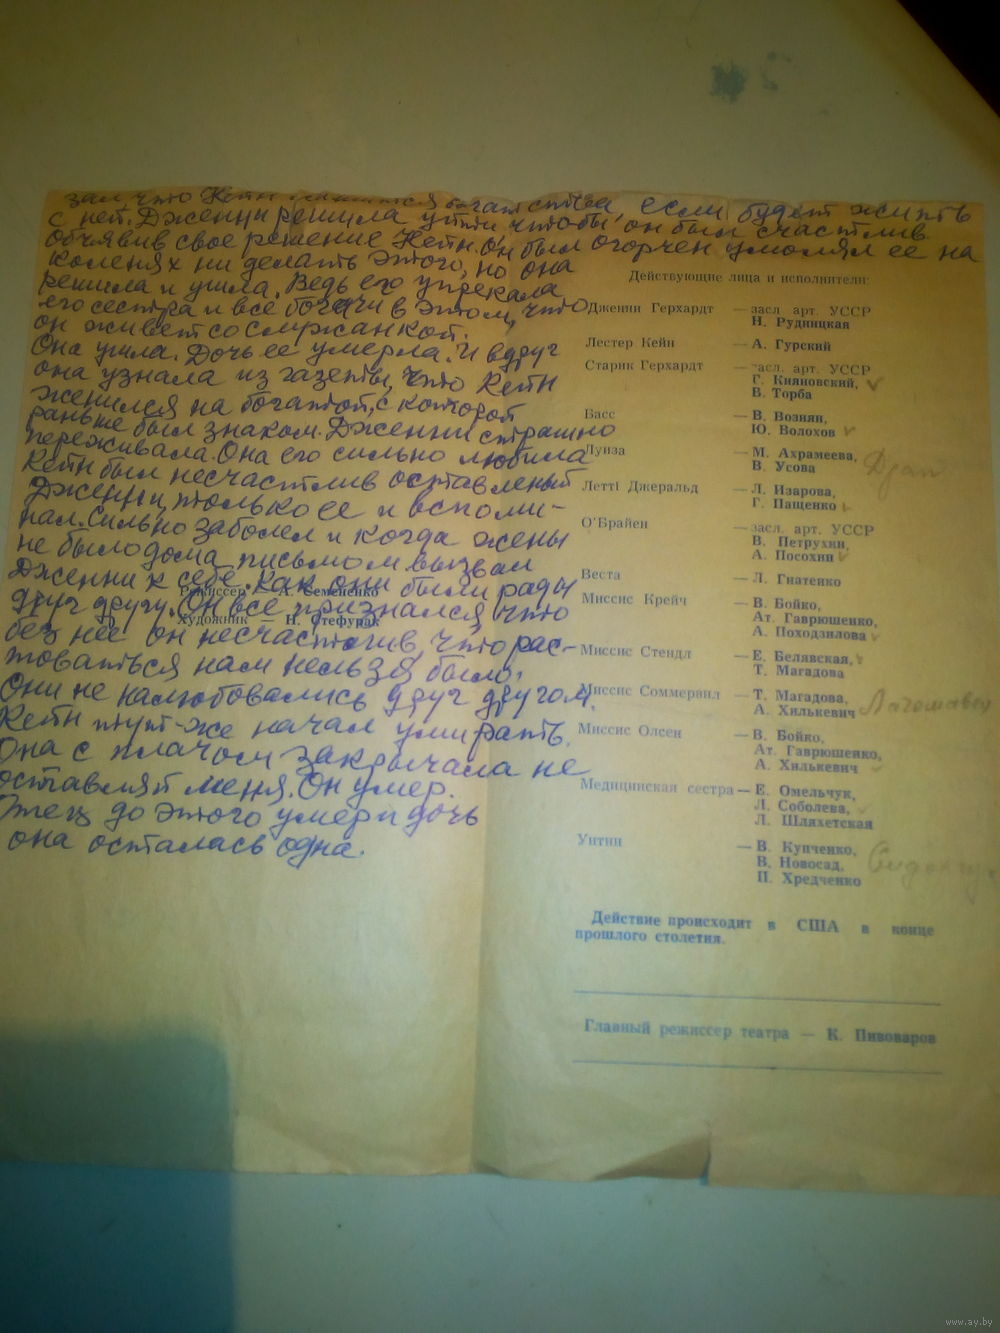 зал, что Кейн лишится богатства, если будет жить
с ней. Дженни решила уйти чтобы он был счастлив
объявив свое решение Кейн. Он был огорчен умолял ее на
коленях ни делать этого, но она
решила и ушла. Ведь его упрекала
его сестра и все богачи в этом, что
он живет со служанкой.
Она ушла. Дочь ее умерла. И вдруг
она узнала из газеты, что Кейн
женился на богатой, с которой
раньше был знаком. Дженни страшно
переживала. Она его сильно любила
Кейн был несчастлив оставленый
Дженни, только ее и вспоми-
нал. Сильно заболел и когда жены
не было дома письмом вызвал
Дженни к себе. Как они были рады
друг другу. Он все признался что
без нее он несчастлив, что рас-
товаться нам нельзя было.
Они не налюбовались друг другом.
Кейн тут-же начал умирать.
Она с плачом закричала не
оставляй меня. Он умер.
Отец до этого умер и дочь
она осталась одна.
Режиссер — А. Семененко
Художник — Н. Стефурак
Действующие лица и исполнители:
Дженни Герхардт — засл арт. УССР
Н. Рудницкая
Лестер Кейн — А. Гурский
Старик Герхардт — засл. арт. УССР
Г. Кияновский,
В. Торба
Басс — В. Возиян,
Ю. Волохов
Луиза — М. Ахрамеева,
В. Усова
Летті Джеральд — Л. Изарова,
Г. Пащенко
О'Брайен — засл. арт. УССР
В. Петрухин,
А. Посохин
Веста — Л. Гнатенко
Миссис Крейч — В. Бойко,
Ат. Гаврюшенко,
А. Походзилова
Миссис Стендл — Е. Белявская,
Т. Магадова
Миссис Соммервил — Т. Магадова,
А. Хилькевич
Миссис Олсен — В. Бойко,
Ат. Гаврюшенко,
А. Хилькевич
Медицинская сестра — Е. Омельчук,
Л. Соболева,
Л. Шляхетская
Уитни — В. Купченко,
В. Новосад,
П. Хредченко
Действие происходит в США в конце
прошлого столетия.
Главный режиссер театра — К. Пивоваров
www.ay.by